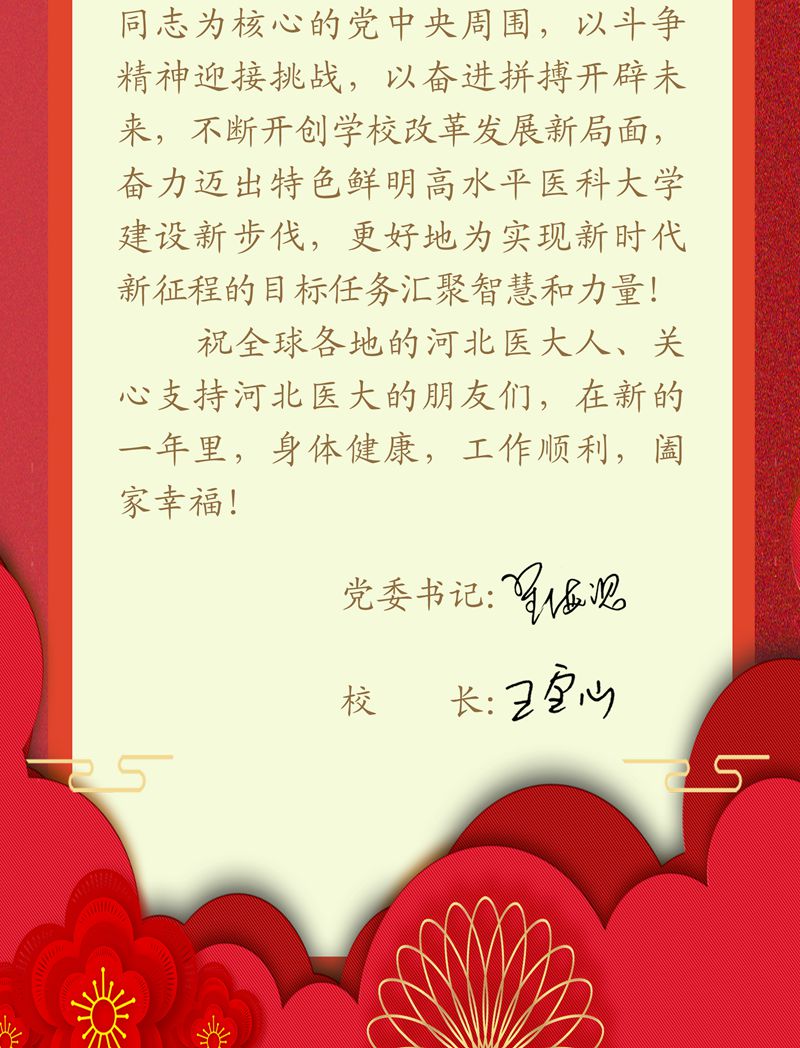 同志为核心的党中央周围，以斗争
精神迎接挑战，以奋进拼搏开辟未
来，不断开创学校改革发展新局面，
奋力迈出特色鲜明高水平医科大学
建设新步伐，更好地为实现新时代
新征程的目标任务汇聚智慧和力量！
祝全球各地的河北医大人、关
心支持河北医大的朋友们，在新的
一年里，身体健康，工作顺利，阖
家幸福！
党委书记：翟海魂
校 长：